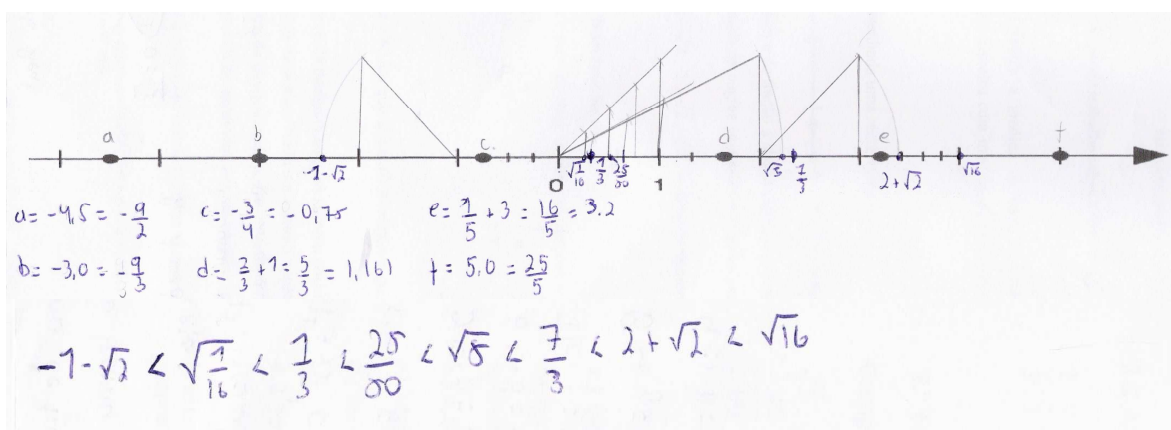 a b c d e f
-1-√2 √1/16 1/3 25/50 √5 7/3 2+√2 √16
0 1
a= -4,5 = -9/2 c= -3/4 = -0,75 e= 1/5 + 3 = 16/5 = 3.2
b= -3,0 = -9/3 d= 2/3 + 1 = 5/3 = 1,(6) f= 5,0 = 25/5
-1-√2 < √1/16 < 1/3 < 25/50 < √5 < 7/3 < 2+√2 < √16